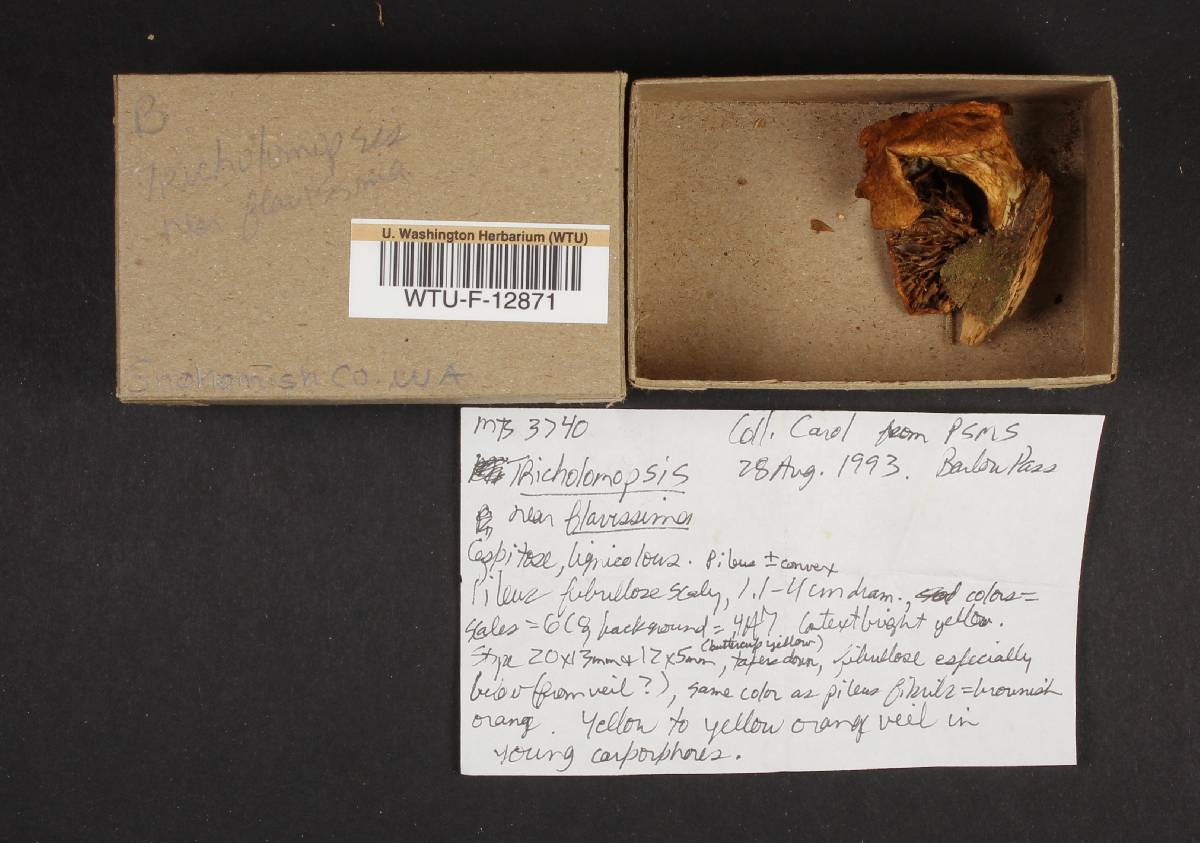 B
Tricholomopsis
near flavissima
U. Washington Herbarium (WTU)
WTU-F-12871
Snohomish Co. WA
MTS 3740
Coll. Carol from PSMS
Tricholomopsis
28 Aug. 1993. Barlow Pass
near flavissima
Cespitose, lignicolous. Pileus ± convex
Pileus fibrullose scaly, 1.1-4 cm diam., colors=
scales = 6C8, background = 4A7 Context bright yellow.
(buttercup yellow)
Stipe 20x13mm & 12x5mm, tapers down, fibrullose especially
below (from veil?), same color as pileus fibrils = brownish
orang. Yellow to yellow orang veil in
young carporphores.